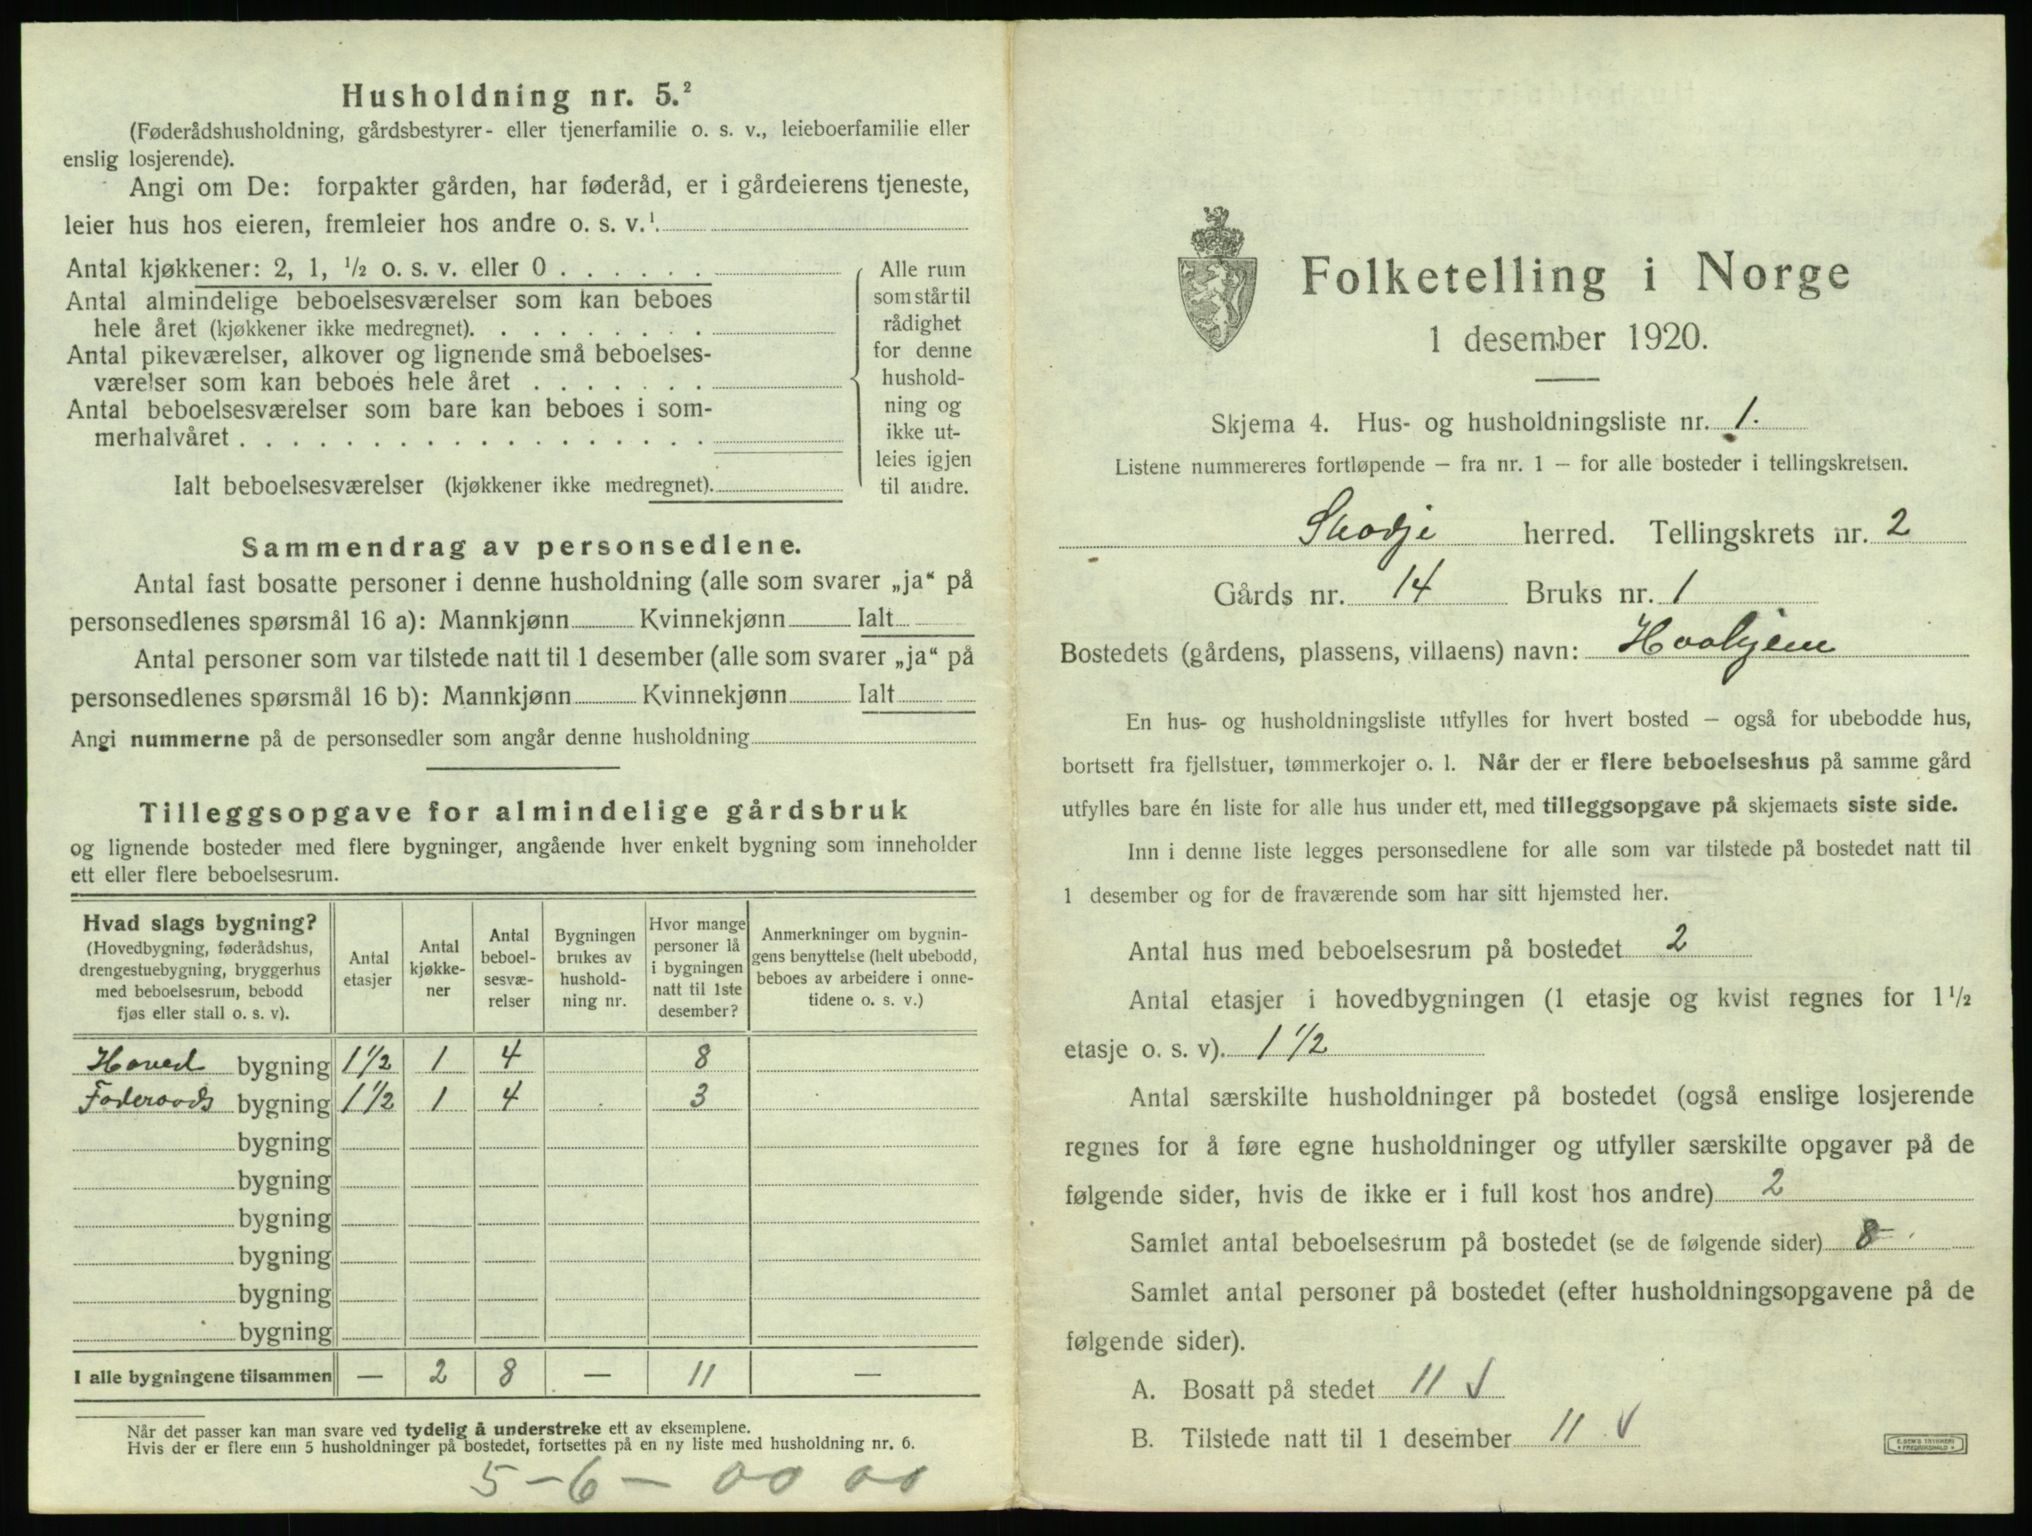 Husholdning nr. 5.²
(Føderådshusholdning, gårdsbestyrer- eller tjenerfamilie o. s. v., leieboerfamilie eller
enslig losjerende).
Angi om De: forpakter gården, har føderåd, er i gårdeierens tjeneste,
leier hus hos eieren, fremleier hos andre o. s. v.¹
Antal kjøkkener: 2, 1, ½ o. s. v. eller 0 . . . . . .
Antal almindelige beboelsesværelser som kan beboes
hele året (kjøkkener ikke medregnet). . . . . . . . .
Antal pikeværelser, alkover og lignende små beboelses-
værelser som kan beboes hele året . . . . . . .
Antal beboelsesværelser som bare kan beboes i som-
merhalvåret . . . . . . . . . . . . . . . . . .
Ialt beboelsesværelser (kjøkkener ikke medregnet).
Alle rum
som står til
rådighet
for denne
hushold-
ning og
ikke ut-
leies igjen
til andre.
Sammendrag av personsedlene.
Antal fast bosatte personer i denne husholdning (alle som svarer „ja“ på
personsedlenes spørsmål 16 a): Mannkjønn Kvinnekjønn Ialt
Antal personer som var tilstede natt til 1 desember (alle som svarer „ja“ på
personsedlenes spørsmål 16 b): Mannkjønn Kvinnekjønn Ialt
Angi nummerne på de personsedler som angår denne husholdning
Tilleggsopgave for almindelige gårdsbruk
og lignende bosteder med flere bygninger, angående hver enkelt bygning som inneholder
ett eller flere beboelsesrum.
Hvad slags bygning?
(Hovedbygning, føderådshus,
drengestuebygning, bryggerhus
med beboelsesrum, bebodd
fjøs eller stall o. s. v).
Antal
etasjer
Antal
kjøkke-
ner
Antal
beboel-
sesvæ-
relser
Bygningen
brukes av
hushold-
ning nr.
Hvor mange
personer lå
i bygningen
natt til 1ste
desember?
Anmerkninger om bygnin-
gens benyttelse (helt ubebodd,
beboes av arbeidere i onne-
tidene o. s. v.)
Hoved bygning 1 ½ 1 4 8
Føderaads bygning 1 ½ 1 4 3
bygning
bygning
bygning
bygning
bygning
bygning
I alle bygningene tilsammen — 2 8 — 11 —
Når det passer kan man svare ved tydelig å understreke ett av eksemplene.
Hvis der er flere enn 5 husholdninger på bostedet, fortsettes på en ny liste med husholdning nr. 6.
5 – 6 – 00 00
Folketelling i Norge
1 desember 1920.
Skjema 4. Hus- og husholdningsliste nr. 1.
Listene nummereres fortløpende – fra nr. 1 – for alle bosteder i tellingskretsen.
Skodje herred. Tellingskrets nr. 2
Gårds nr. 14 Bruks nr. 1
Bostedets (gårdens, plassens, villaens) navn:
En hus- og husholdningsliste utfylles for hvert bosted – også for ubebodde hus,
bortsett fra fjellstuer, tømmerkojer o. l. Når der er flere beboelseshus på samme gård
utfylles bare én liste for alle hus under ett, med tilleggsopgave på skjemaets siste side.
Inn i denne liste legges personsedlene for alle som var tilstede på bostedet natt til
1 desember og for de fraværende som har sitt hjemsted her.
Antal hus med beboelsesrum på bostedet 2
Antal etasjer i hovedbygningen (1 etasje og kvist regnes for 1½
etasje o. s. v). 1 ½
Antal særskilte husholdninger på bostedet (også enslige losjerende
regnes for å føre egne husholdninger og utfyller særskilte opgaver på de
følgende sider, hvis de ikke er i full kost hos andre) 2
Samlet antal beboelsesrum på bostedet (se de følgende sider) 8
Samlet antal personer på bostedet (efter husholdningsopgavene på de
følgende sider).
A. Bosatt på stedet 11 √
B. Tilstede natt til 1 desember 11 √
E. SEM'S TRYKKERI
FREDRIKSHALD